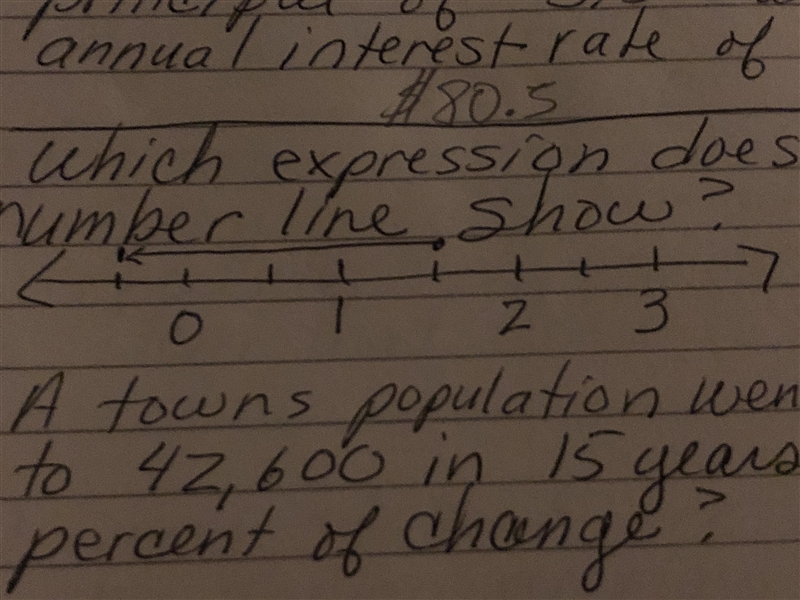 principal of
annual interest rate of
$80.5
Which expression does
number line show?
0 1 2 3
A towns population wen
to 42,600 in 15 years
percent of change?